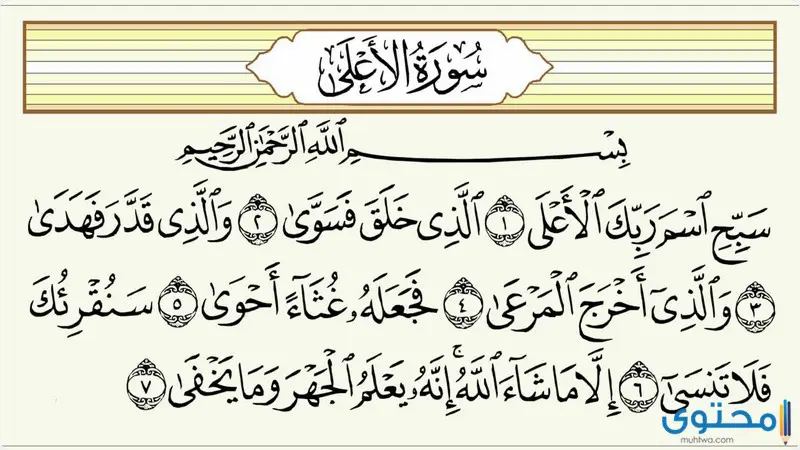 سُورَةُ الأَعْلَى
بِسْمِ ٱللَّهِ ٱلرَّحْمَٰنِ ٱلرَّحِيمِ
سَبِّحِ ٱسْمَ رَبِّكَ ٱلْأَعْلَى ١ ٱلَّذِى خَلَقَ فَسَوَّىٰ ٢ وَٱلَّذِى قَدَّرَ فَهَدَىٰ
٣ وَٱلَّذِىٓ أَخْرَجَ ٱلْمَرْعَىٰ ٤ فَجَعَلَهُۥ غُثَآءً أَحْوَىٰ ٥ سَنُقْرِئُكَ
فَلَا تَنسَىٰٓ ٦ إِلَّا مَا شَآءَ ٱللَّهُ ۚ إِنَّهُۥ يَعْلَمُ ٱلْجَهْرَ وَمَا يَخْفَىٰ ٧
محتوى
muhtwa.com